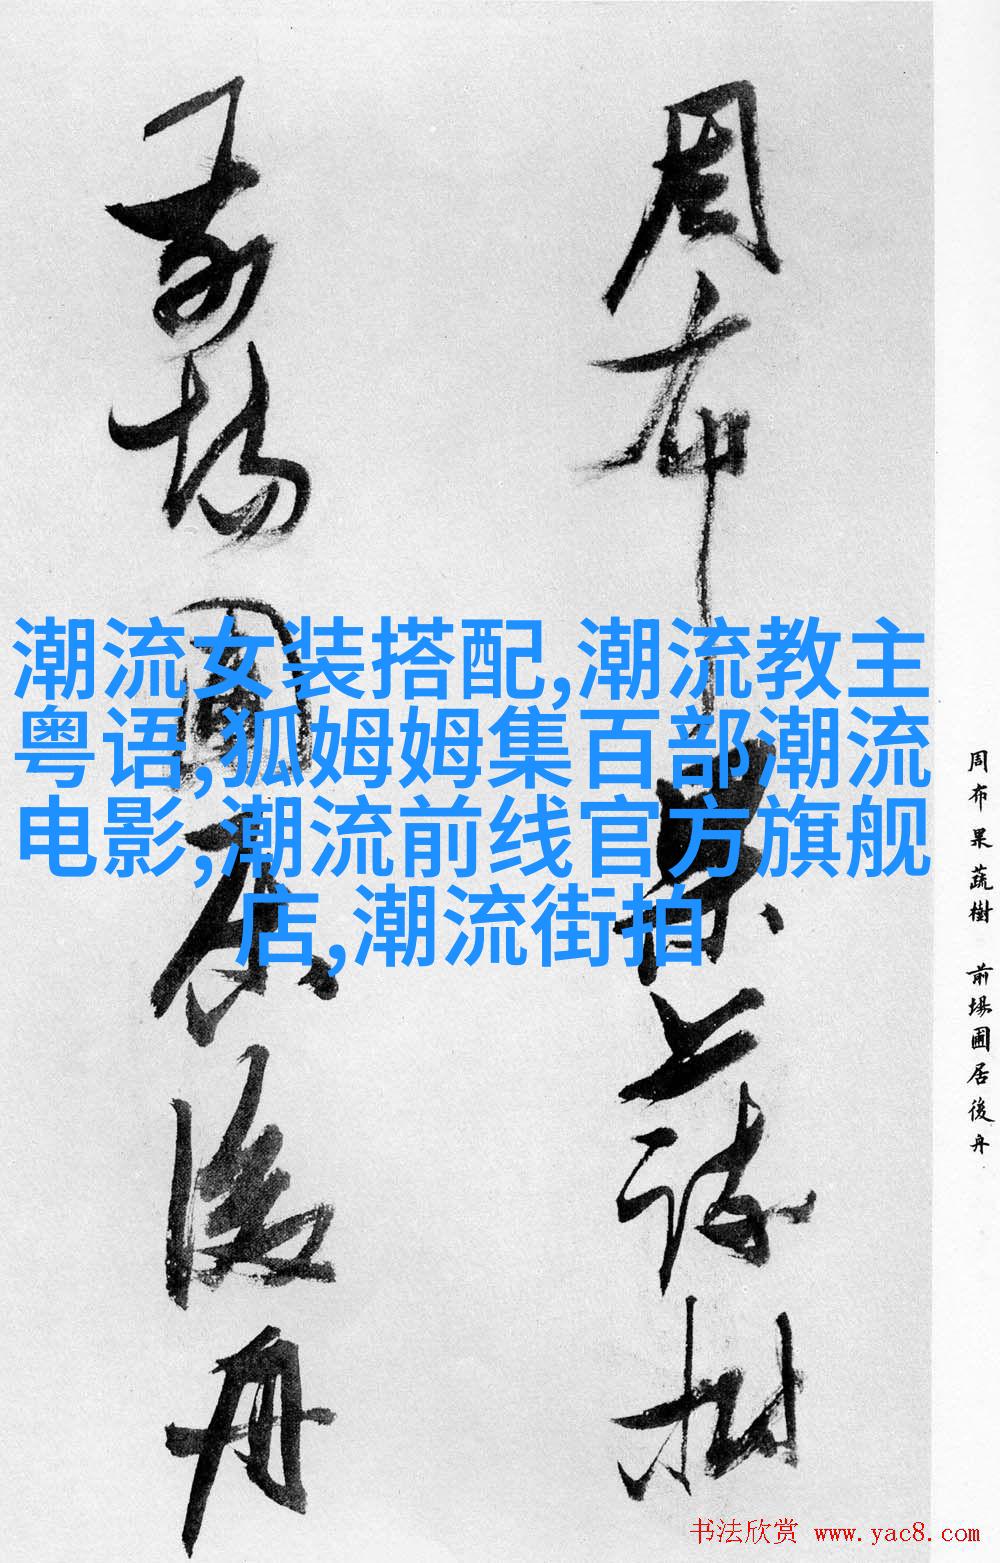 周布果蔬樹
前場圃居後舟
潮流女装搭配,潮流教主
粤语,狐姆姆集百部潮流
电影,潮流前线官方旗舰
店,潮流街拍
周布果蔬樹 前場圃居後舟
书法欣赏 www.yac8.com